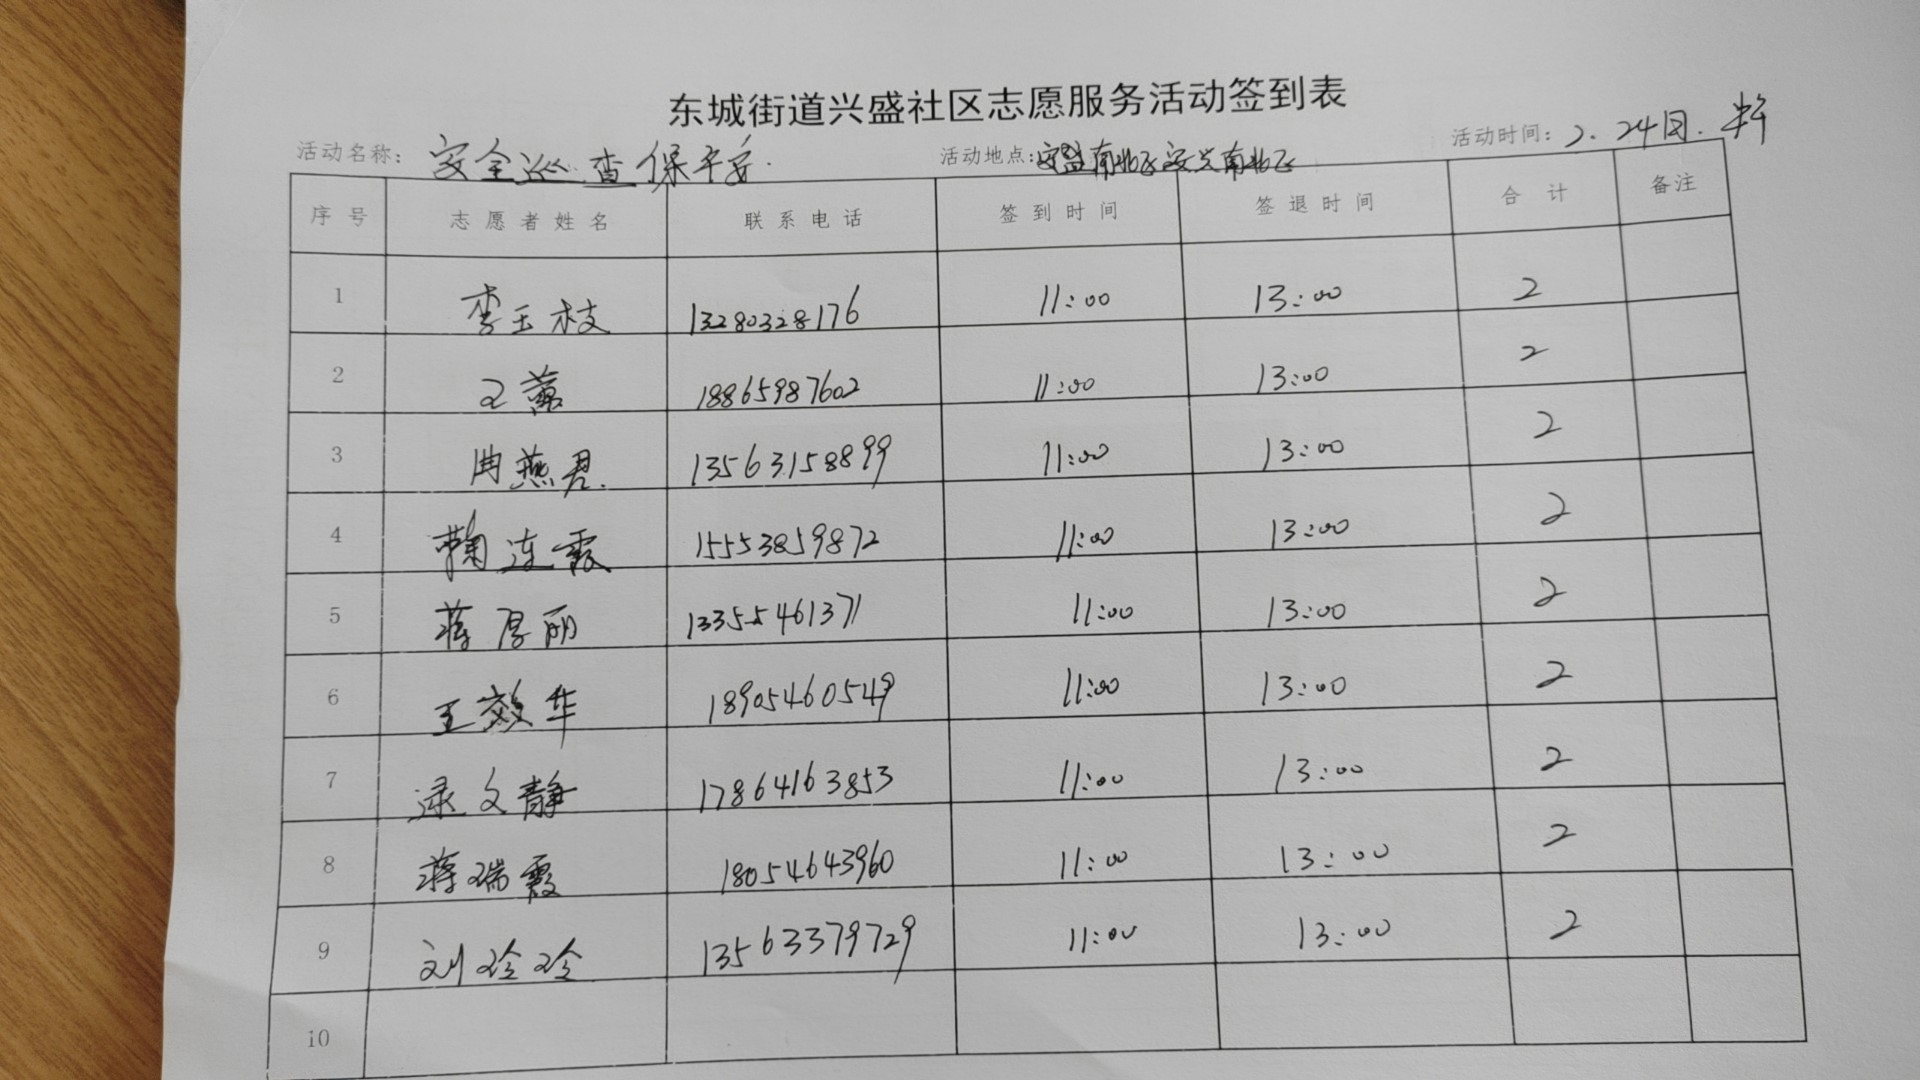 东城街道兴盛社区志愿服务活动签到表
活动名称: 安全巡查保平安. 活动地点: 安盛南北区安兴南北区 活动时间: 2.24日.
序号 志愿者姓名 联系电话 签到时间 签退时间 合计 备注
1 李玉枝 13280328176 11:00 13:00 2
2 王蕙 18865987602 11:00 13:00 2
3 冉燕君. 13563158899 11:00 13:00 2
4 鞠连霞 15553859872 11:00 13:00 2
5 蒋厚丽 13355461371 11:00 13:00 2
6 王效华 18905460549 11:00 13:00 2
7 逯文静 17864163853 11:00 13:00 2
8 蒋瑞霞 18054643960 11:00 13:00 2
9 刘玲玲 13563379729 11:00 13:00 2
10